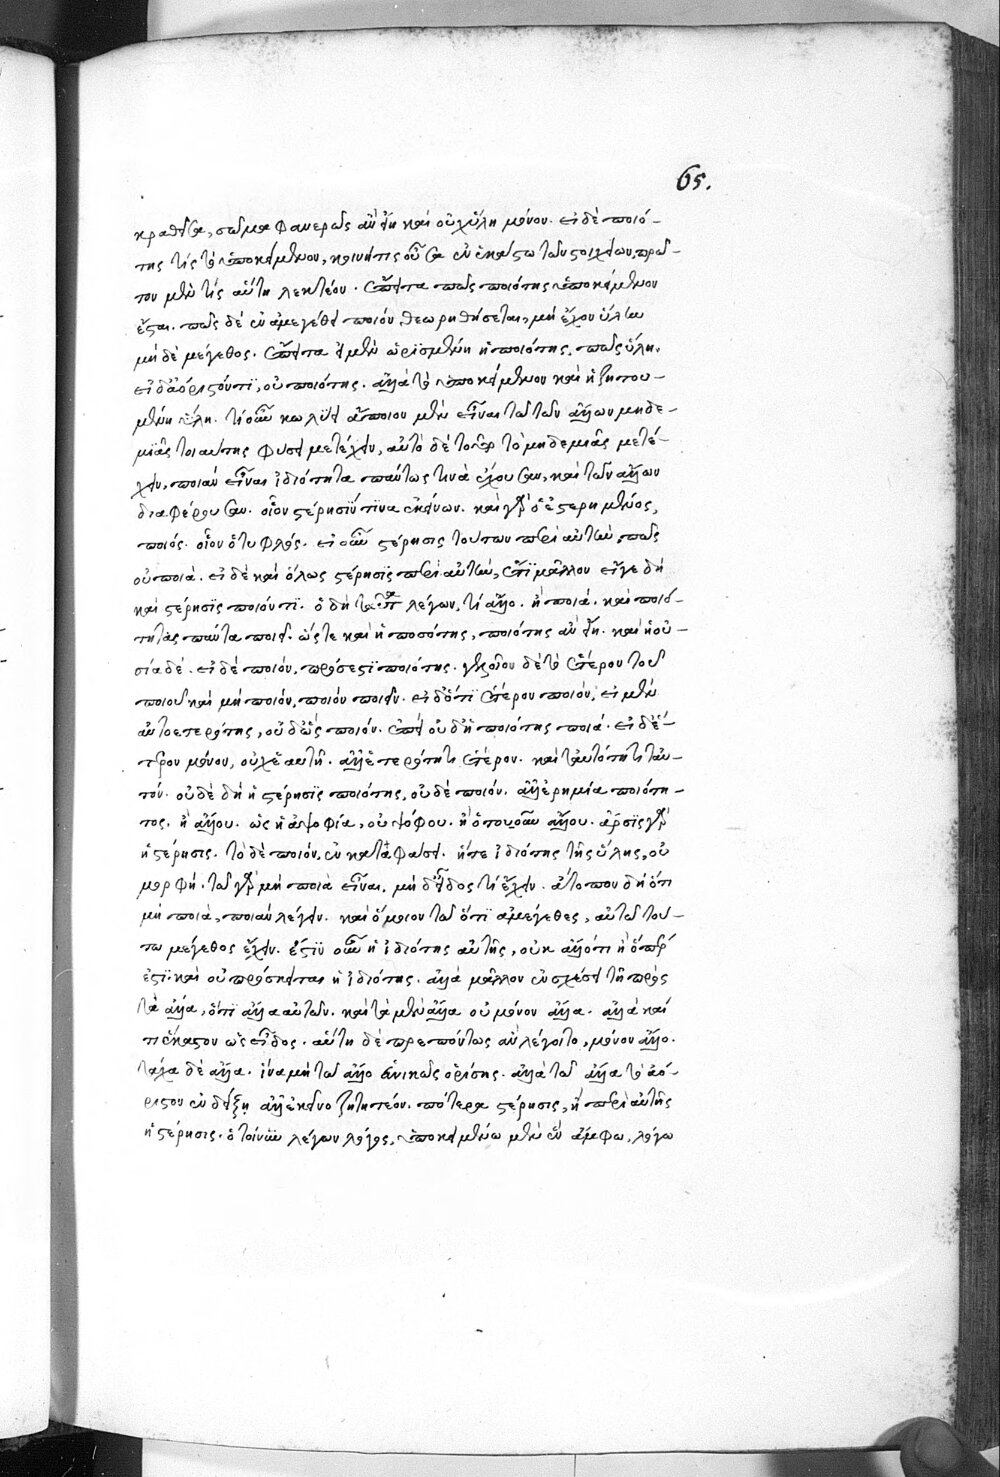 65.
κραθεῖσα, σῶμα φανερῶς ἂν εἴη καὶ οὐχ ὕλη μόνον. εἰ δὲ ποιό-
της τίς τὸ ὑποκείμενον, κοινή τις οὖσα ἐν ἑκάστω τῶν στοιχείων, πρῶ-
τον μὲν τίς αὕτη λεκτέον. ἔπειτα πῶς ποιότης ὑποκείμενον
ἔσται. πῶς δὲ ἐν ἀμεγέθει ποιόν θεωρηθήσεται, μὴ ἔχον ὕλην
μὴ δὲ μέγεθος. ἔπειτα εἰ μὲν ὡρϊσμένη ἡ ποιότης, πῶς ὕλη.
εἰ δ' ἀόριστόν τϊ, οὐ ποιότης. ἀλλὰ τὸ ὑποκείμενον καὶ ἡ ζητου-
μένη ὕλη. τί οὖν κωλύει ἄποιον μὲν εἶναι τῶ τῶν ἄλλων μηδε-
μιᾶς τοιαύτης φύσει μετέχειν, αὐτὸ δὲ τοῦτο τὸ μηδεμιᾶς μετέ-
χειν, ποιὰν εἶναι ἰδιότητα πάντως τινὰ ἔχουσαν, καὶ τῶν ἄλλων
διαφέρουσαν. οἷον στέρησίν τϊνα ἐκείνων. καὶ γὰρ ὁ ἐστερημένος,
ποιός. οἷον ὁ τυφλός. εἰ οὖν στέρησις τούτων περὶ αὐτήν, πῶς
οὐ ποιά. εἰ δὲ καὶ ὅλως στέρησϊς περὶ αὐτήν, ἔτϊ μᾶλλον εἴγε δὴ
καὶ στέρησϊς ποιόν τϊ. ὁ δὴ ταῦτα λέγων, τί ἄλλο. ἢ ποιά. καὶ ποιό-
τητας πάντα ποιεῖ. ὥστε καὶ ἡ ποσότης, ποιότης ἂν εἴη. καὶ ἡ οὐ-
σία δέ. εἰ δὲ ποιόν, πρόσεστϊ ποιότης. γελοῖον δὲ τὸ ἕτερον τοῦ
ποιοῦ καὶ μὴ ποιόν, ποιόν ποιεῖν. εἰ δ' ὅτϊ ἕτερον ποιόν, εἰ μὲν
αὐτοετερότης, οὐδ' ὣς ποιόν. ἐπεὶ οὐδ' ἡ ποιότης ποιά. εἰ δ' ἕ-
τερον μόνον, οὐχ ἑαυτῆ. ἀλλ' ἑτερότητι ἕτερον. καὶ ταυτότητι ταὐ-
τόν. οὐδὲ δὴ ἡ στέρησϊς ποιότης, οὐδὲ ποιόν. ἀλλ' ἐρημία ποιότη-
τος. ἢ ἄλλου. ὡς ἡ ἀψοφία, οὐ ψόφου. ἢ ὁτουοῦν ἄλλου. ἄρσϊς γὰρ
ἡ στέρησις. τὸ δὲ ποιόν, ἐν καταφάσει. ἥ τε ἰδιότης τῆς ὕλης, οὐ
μορφή. τῶ γὰρ μὴ ποιὰ εἶναι, μὴ δ' εἶδος τί ἔχειν. ἄτοπον δὴ ὅτι
μὴ ποιὰ, ποιὰν λέγειν. καὶ ὅμοιον τῶ ὅτϊ ἀμέγεθες, αὐτῶ τού-
τω μέγεθος ἔχειν. ἔστϊν οὖν ἡ ἰδιότης αὐτῆς, οὐκ ἄλλό τι ἢ ὅπερ
ἐστϊ. καὶ οὐ πρόσκειται ἡ ἰδιότης. ἀλλὰ μᾶλλον ἐν σχέσει τῆ πρὸς
τὰ ἄλλα, ὅτϊ ἄλλα αὐτῶν. καὶ τὰ μὲν ἄλλα οὐ μόνον ἄλλα. ἀλλὰ καί
τι ἕκαστον ὡς εἶδος. αὕτη δὲ πρεπόντως ἂν λέγοιτο, μόνον ἄλλο.
τάχα δὲ ἄλλα. ἵνα μὴ τῶ ἄλλο ἑνικῶς ὁρίσης. ἀλλὰ τῶ ἄλλα τὸ ἀό-
ριστον ἐνδείξη. ἀλλ' ἐκεῖνο ζητητέον. πότερα στέρησις, ἢ περὶ αὐτῆς
ἡ στέρησις. ὁ τοίνυν λέγων λόγος, ὑποκειμένω μὲν ἓν ἄμφω, λόγω